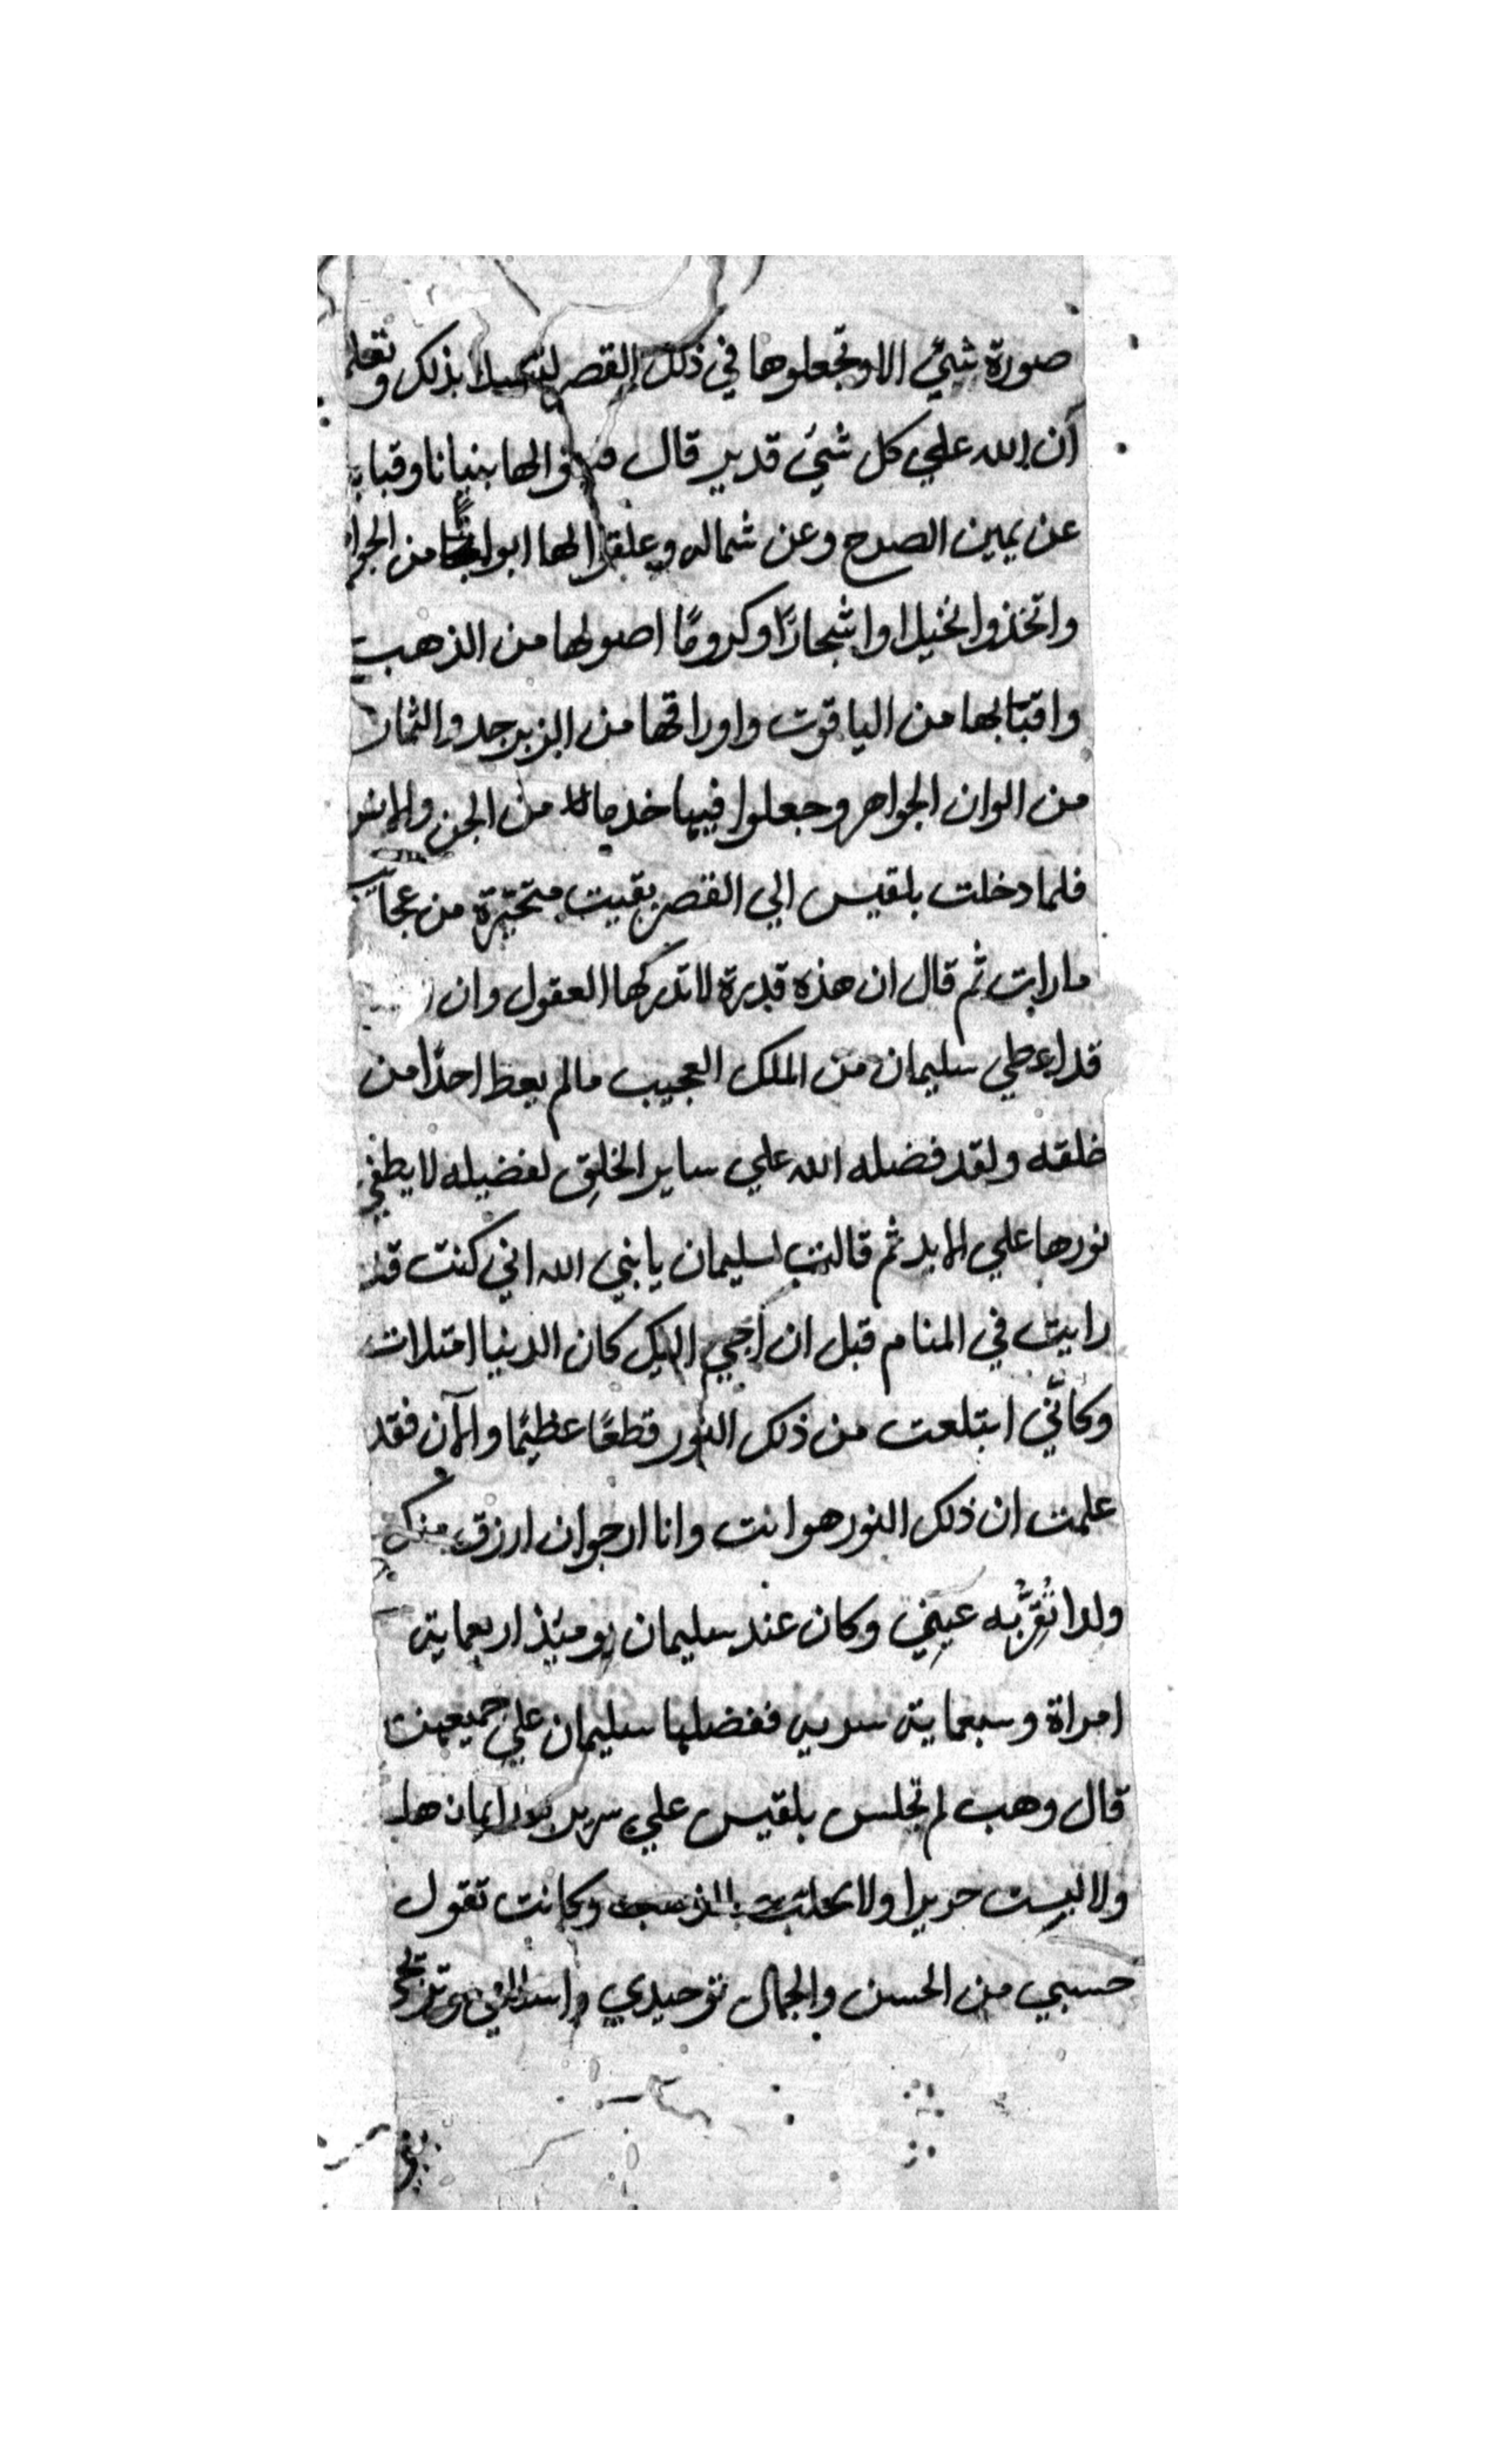 صورة شيئ الا وتجعلوها في ذلك القصر بذلك وتعلم
ان الله علي كل شيئ قدير قال لها بنيانا وقبابا
عن يمين الصرح وعن شماله وعلقوا لها ابوابا من الجواهر
واتخذوا نخيلا واشجارًا وكرومًا اصولها من الذهب
واقتابها من الياقوت واوراقها من الزبرجد والثمار
من الوان الجواهر وجعلوا فيها خدما لا من الجن والانس
فلما دخلت بلقيس الي القصر بقيت متحيّرة من عجايب
ما رات ثم قال ان هذه قدرة لا تدركها العقول وان
قد اعطي سليمان من الملك العجيب ما لم يعط احدًا من
خلقه ولقد فضله الله علي ساير الخلق لفضيله لا يطفي
نورها علي الابد ثم قالت لسليمان يا نبي الله اني كنت قد
رايت في المنام قبل ان اجي اليك كان الدنيا امتلات
وكانّي ابتلعت من ذلك النور قطعًا عظيمًا والآن فقد
علمت ان ذلك النور هو انت وانا ارجوا ان ارزق منك
ولدا تُقرُّ به عيني وكان عند سليمان يوميذ اربعماية
امراة وسبعماية سريه ففضلها سليمان علي جميعهن
قال وهب لم تجلس بلقيس علي سرير بعد ايمانها
ولا لبست حريرا ولا تحلت بالذهب وكانت تقول
حسبي من الحسن والجمال توحيدي